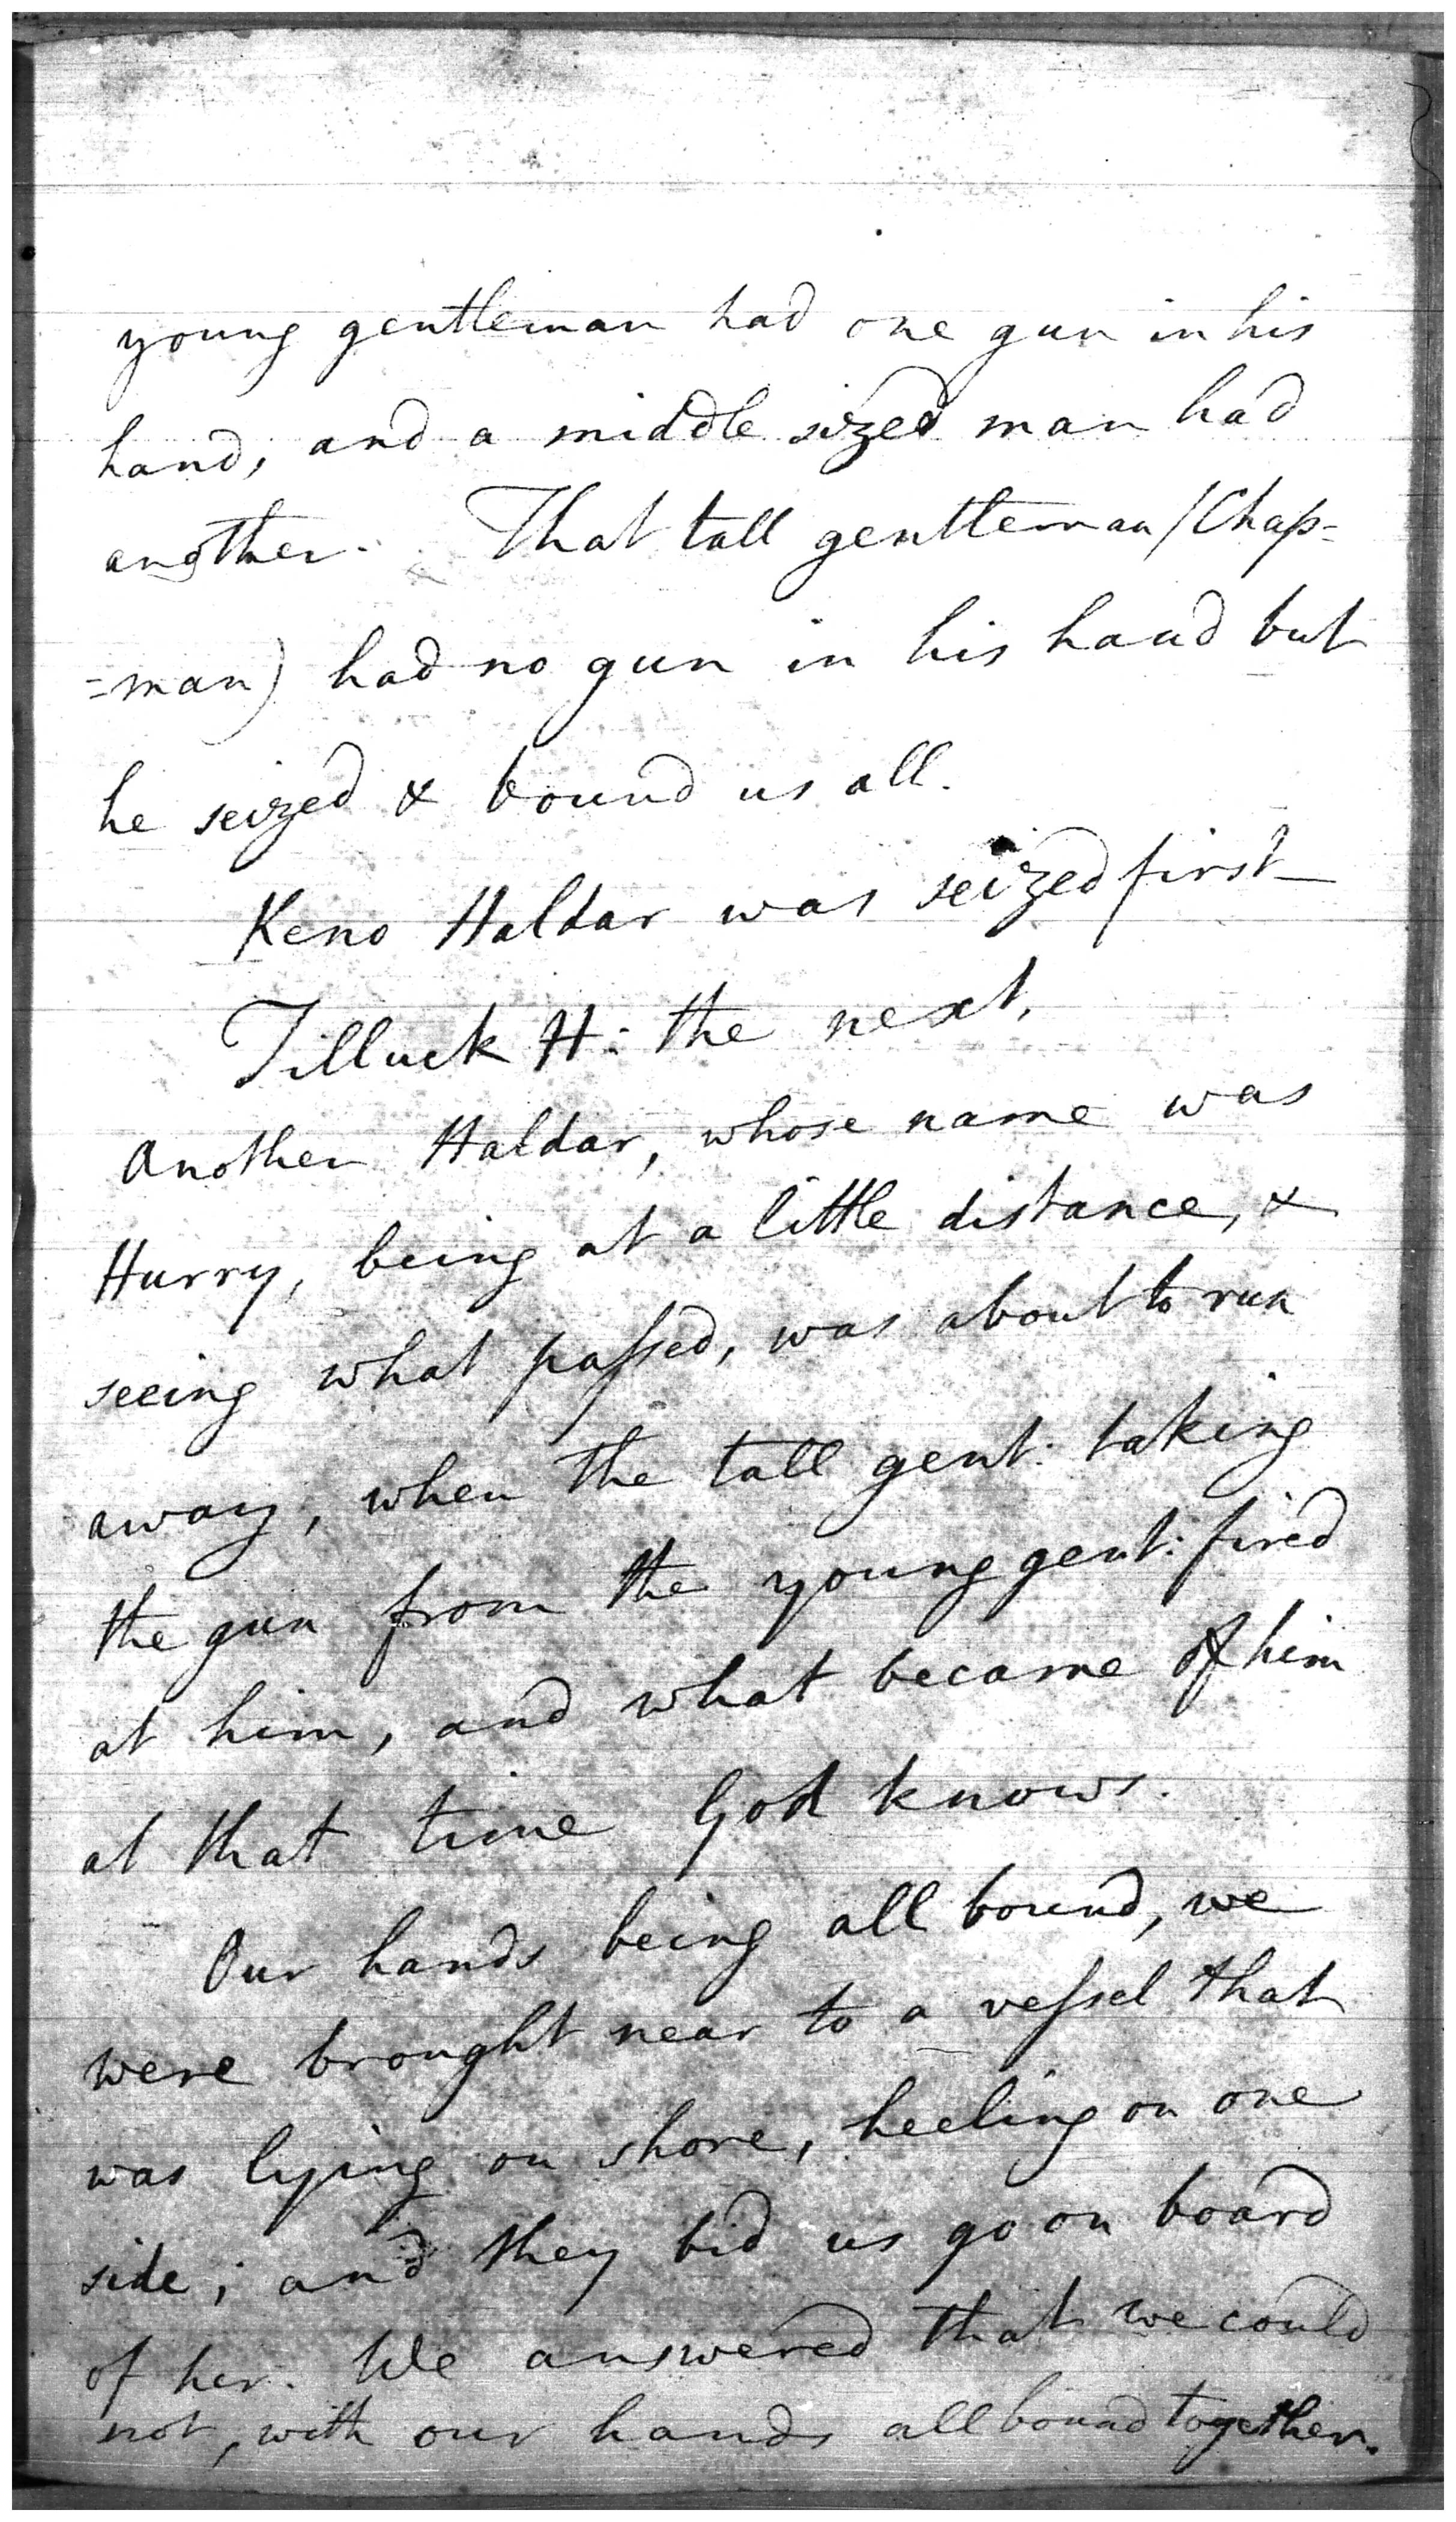 young gentleman had one gun in his
hand, and a middle sized man had
another. That tall gentleman (Chap=
=man) had no gun in his hand but
he seized & bound us all.
Keno Haldar was seized first
Tilluck H: the next,
Another Haldar, whose name was
Hurry, being at a little distance, &
seeing what paſsed, was about to run
away, when the tall gent: taking
the gun from the young gent: fired
at him, and what became of him
at that time God knows.
Our hands being all bound, we
were brought near to a veſsel that
was lying on shore, heeling on one
side; and they bid us go on board
of her. We answered that we could
not, with our hands all bound together.